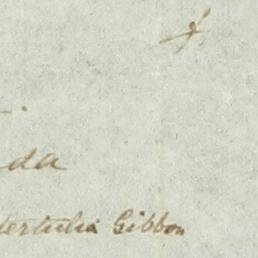 da
tertulia Gibbon